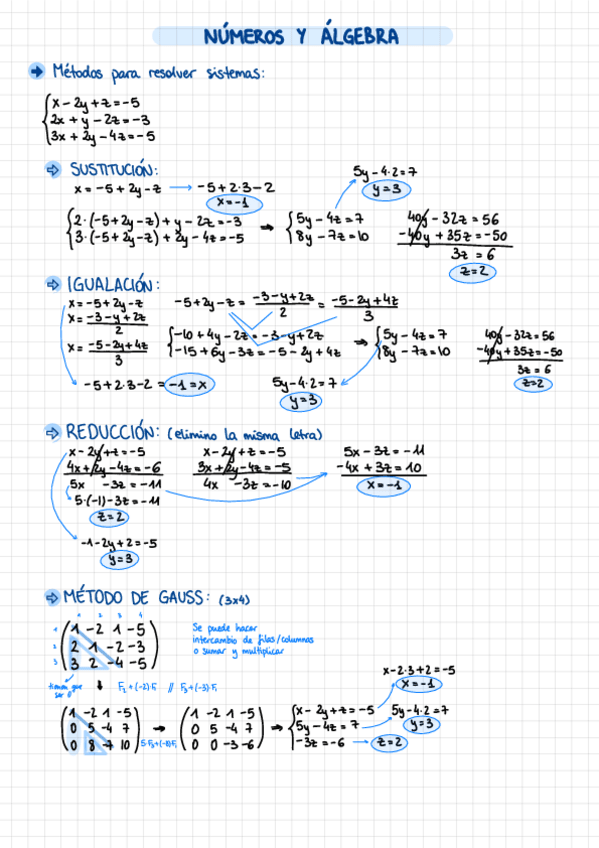 NÚMEROS Y ÁLGEBRA
→ Métodos para resolver sistemas:
x - 2y + z = -5
2x + y - 2z = -3
3x + 2y - 4z = -5
⇨ SUSTITUCIÓN:
x = -5 + 2y - z → -5 + 2·3 - 2
x = -1
5y - 4·2 = 7
y = 3
2·(-5 + 2y - z) + y - 2z = -3
3·(-5 + 2y - z) + 2y - 4z = -5
→
5y - 4z = 7
8y - 7z = 10
40y - 32z = 56
-40y + 35z = -50
3z = 6
z = 2
⇨ IGUALACIÓN:
x = -5 + 2y - z
x = (-3 - y + 2z)/2
x = (-5 - 2y + 4z)/3
-5 + 2y - z = (-3 - y + 2z)/2 = (-5 - 2y + 4z)/3
-10 + 4y - 2z = -3 - y + 2z
-15 + 6y - 3z = -5 - 2y + 4z
→
5y - 4z = 7
8y - 7z = 10
40y - 32z = 56
-40y + 35z = -50
3z = 6
z = 2
-5 + 2·3 - 2 = -1 = x
5y - 4·2 = 7
y = 3
⇨ REDUCCIÓN: (elimino la misma letra)
x - 2y + z = -5
4x + 2y - 4z = -6
5x - 3z = -11
5·(-1) - 3z = -11
z = 2
-1 - 2y + 2 = -5
y = 3
x - 2y + z = -5
3x + 2y - 4z = -5
4x - 3z = -10
5x - 3z = -11
-4x + 3z = 10
x = -1
⇨ MÉTODO DE GAUSS: (3x4)
1 2 3 4
1 1 -2 1 -5
2 2 1 -2 -3
3 3 2 -4 -5
Se puede hacer
intercambio de filas/columnas
o sumar y multiplicar
tienen que
ser 0
↓ F₂ + (-2)·F₁ // F₃ + (-3)·F₁
1 -2 1 -5
0 5 -4 7
0 8 -7 10
5·F₃ + (-8)·F₂
→
1 -2 1 -5
0 5 -4 7
0 0 -3 -6
→
x - 2y + z = -5
5y - 4z = 7
-3z = -6 → z = 2
x - 2·3 + 2 = -5
x = -1
5y - 4·2 = 7
y = 3